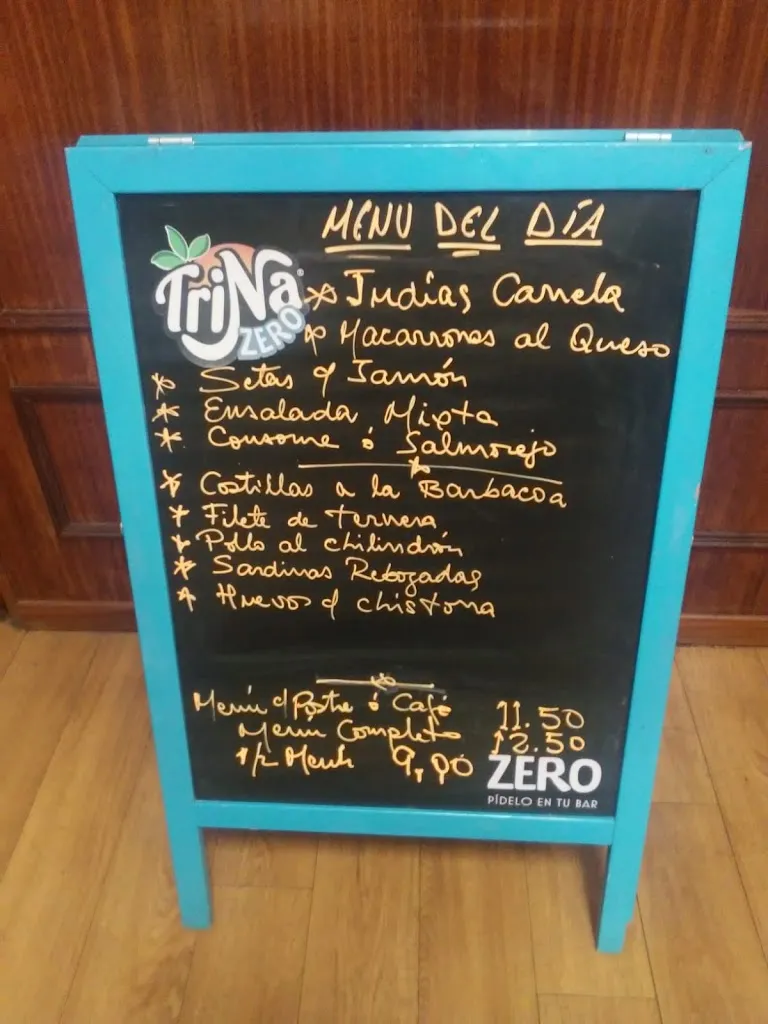 MENU DEL DÍA
TriNa
ZERO
* Judías Canela
* Macarrones al Queso
* Setas c/ Jamón
* Ensalada Mixta
* Consome ó Salmorejo
* Costillas a la Barbacoa
* Filete de Ternera
* Pollo al chilindrón
* Sardinas Rebozadas
* Huevos c/ chistorra
Menú c/ Postre ó Café 11.50
Menú Completo 12.50
1/2 Menú 9,00
ZERO
PÍDELO EN TU BAR